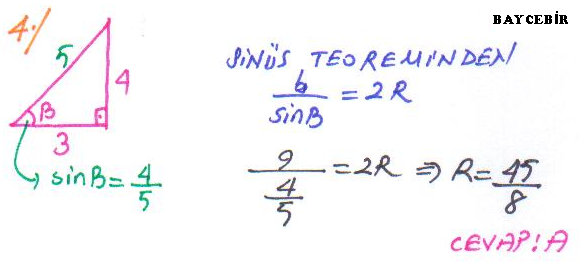 BAYCEBİR
4·/
5
4
B
3
sinB = 4/5
SİNÜS TEOREMİNDEN
b/sinB = 2R
9/(4/5) = 2R ⇒ R = 45/8
CEVAP: A